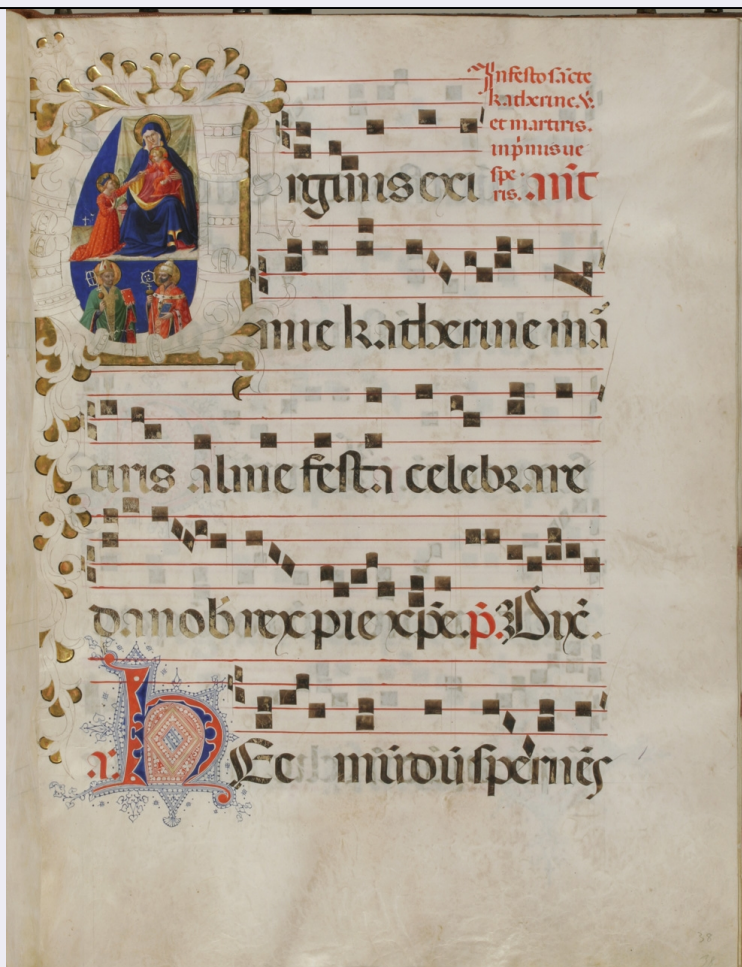 In festo sc̄te
katherine. V.
et martiris.
in p̄mis ue
spe
ris. añt
irginis exi
mie katherine mā
tiris alme festa celebrare
da nob̄ rex pie xp̄e. p̄. Dix̄.
a. hEc mūdū spernēs
38